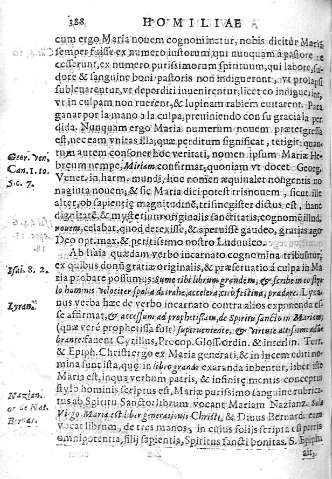 188 HOMILIAE
cum ergo Maria nouem cognominatur, nobis dicitur Maria
semper fuisse ex numero iustorum, qui nunquam à pastore re
cesserunt, ex numero purissimorum spirituum, qui labore, su-
dore & sanguine boni pastoris non indiguerunt, vt prolapsi
subleuarentur, vt deperditi inuenirentur, licet eo indiguerunt,
vt in culpam non ruerent, & lupinam rabiem euitarent. Para
ganar por la mano a la culpa, preuiniendo con su gracia la per
dida. Nunquam ergo Maria numerum nouem prætergressa
est, nec eam vnitas illa, quæ perditum significat, tetigit: quan-
tum autem consonet hoc veritati, nomen ipsum Mariæ He-
bræum nempe, Miriam confirmat, quoniam vt docet Georg.
Venet. in harm. mundi, hoc nomen æquivalet nongentis no-
naginta nouem, & sic Maria dici potest trisnouem, sicut ille
alter, ob sapientię magnitudinē, trismegister dictus est, hanc
dignitatē, & mysterium originalis sanctitatis, cognomē illud,
nouem, celabat, quod detexisse, & aperuisse gaudeo, gratias ago
Deo opt. max. & peritissimo nostro Luduuico.
Ab alia quædam verbo incarnato cognomina tribuitur,
ex quibus donū gratiæ originalis, & præseruatio à culpa in Ma
ria probare possumus: Sume tibi librum grandem, & scribe in eo sty
lo hominis Velociter spolia detrahe, accelera,
nus verba hæc de verbo incarnato contra alios exponenda es-
se affirmat, & accessum ad prophetissam, de Spiritu sancto in Mariam,
(quæ verè prophetissa fuit) superueniente, & Virtute altissimi adum
brante fauent Cyrillus, Procop. Gloss. ordin. & interlin. Tert.
& Epiph. Christi ergo ex Maria generati, & in lucem editi no-
mina sunt ista, quæ in libro grande exaranda inhentur, liber iste
Maria est, in qua verbum patris, & infinitę mentis conceptus
stylo hominis scriptus est, Mariæ purissimo sanguine rubrica-
tus ab Spiritu Sancto: librum vocant Mariam Nazianz. Sola
Virgo Maria est liber generationis Christi, & Diuus Bernard. eam
vocat librum, de tres manos, in cuius folijs scripta est patris
omnipotentia, filij sapientia, Spiritus sancti bonitas. S. Epiph.
Geor. Ven.
Can. 1. 10.
5. c. 7.
Isai. 8. 2.
Lyran.
Nazian.
or. de Nat.
Bernar.